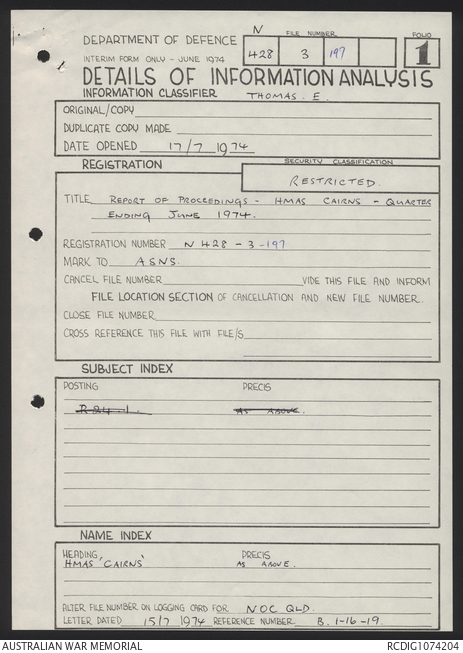 N FILE NUMBER FOLIO
DEPARTMENT OF DEFENCE 428 3 197 1
INTERIM FORM ONLY - JUNE 1974
DETAILS OF INFORMATION ANALYSIS
INFORMATION CLASSIFIER THOMAS. E.
ORIGINAL/COPY
DUPLICATE COPY MADE
DATE OPENED 17/7 1974
REGISTRATION SECURITY CLASSIFICATION
RESTRICTED
TITLE REPORT OF PROCEEDINGS - HMAS CAIRNS - QUARTER
ENDING JUNE 1974.
REGISTRATION NUMBER N 428 - 3 - 197
MARK TO ASNS.
CANCEL FILE NUMBER VIDE THIS FILE AND INFORM
FILE LOCATION SECTION OF CANCELLATION AND NEW FILE NUMBER.
CLOSE FILE NUMBER
CROSS REFERENCE THIS FILE WITH FILE/S
SUBJECT INDEX
POSTING PRECIS
AS ABOVE.
NAME INDEX
HEADING, PRECIS
HMAS 'CAIRNS' AS ABOVE.
ALTER FILE NUMBER ON LOGGING CARD FOR NOC QLD.
LETTER DATED 15/7 1974 REFERENCE NUMBER B. 1-16-19.
AUSTRALIAN WAR MEMORIAL RCDIG1074204